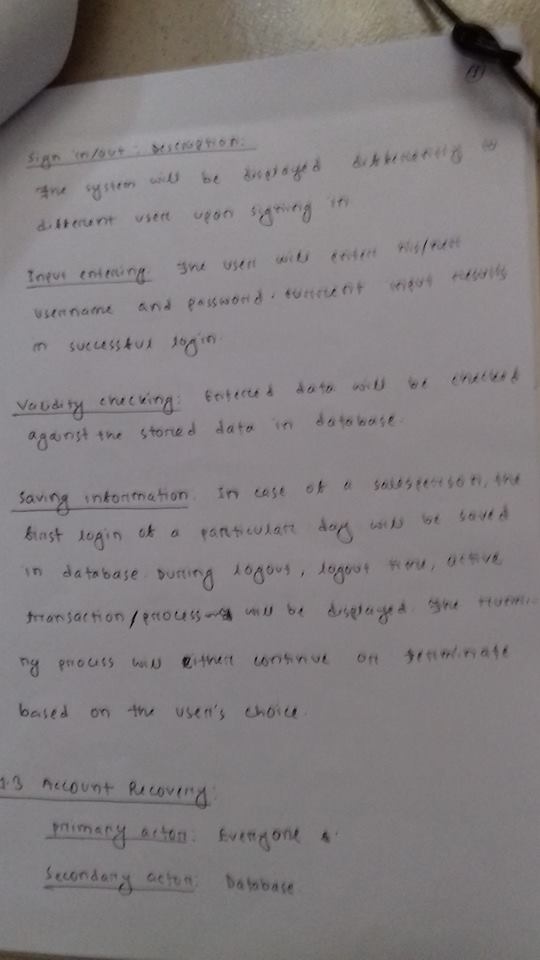 Sign in/out : Description:
The system will be displayed differently to
different user upon signing in
Input entering: The user will enter his/her
username and password. Current input results
in successful login.
Validity checking: Entered data will be checked
against the stored data in database.
Saving information. In case of a salesperson, the
first login of a particular day will be saved
in database. During logout, logout time, active
transaction/process will be displayed. The runni-
ng process will either continue or terminate
based on the user's choice.
1.3 Account Recovery:
Primary actor: Everyone
Secondary actor: Database